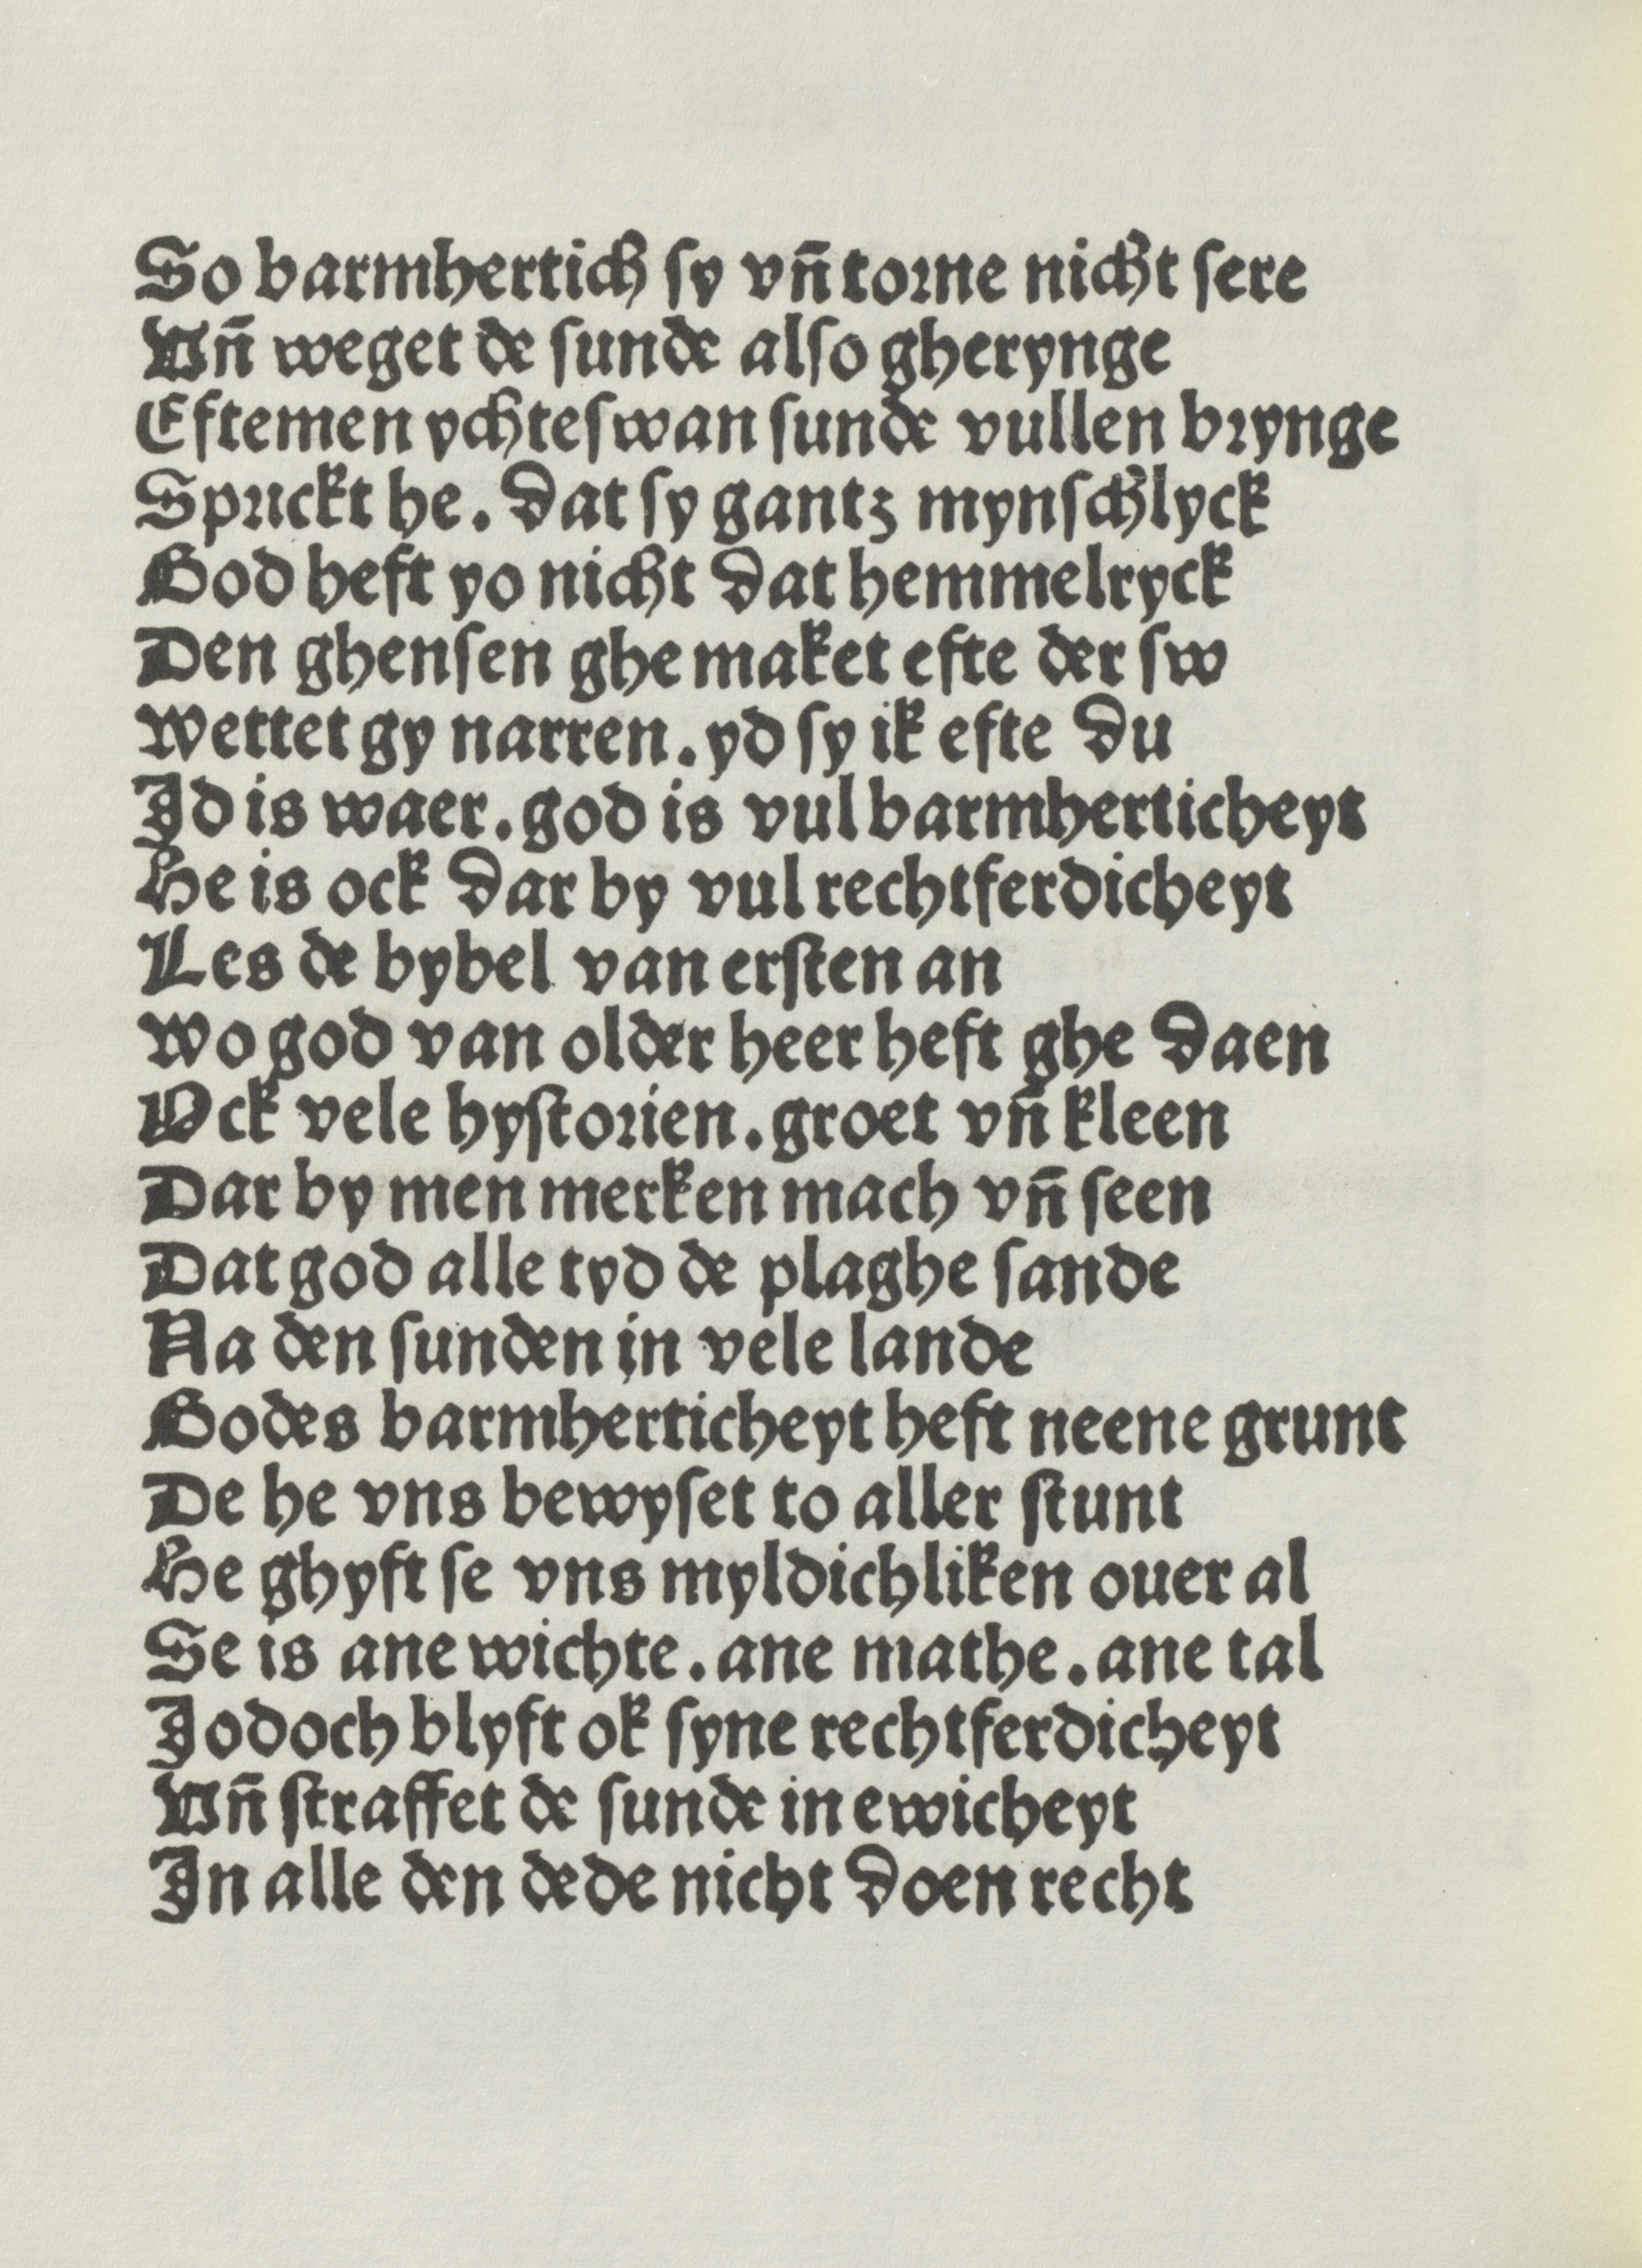 So barmhertich sy vñ torne nicht sere
Vñ weget de sunde also gherynge
Efte men ychteswan sunde vullen brynge
Spruckt he. dat sy gantz mynschlyck
God heft yo nicht dat hemmelryck
Den ghensen ghe maket efte der sw
Wettet gy narren. yd sy ik efte du
Id is waer. god is vul barmherticheyt
He is ock dar by vul rechtferdicheyt
Les de bybel van ersten an
Wo god van older heer heft ghe daen
Ock vele hystorien. groet vñ kleen
Dar by men merken mach vñ seen
Dat god alle tyd de plaghe sande
Na den sunden in vele lande
Godes barmherticheyt heft neene grunt
De he vns bewyset to aller stunt
He ghyft se vns myldichliken ouer al
Se is ane wichte. ane mathe. ane tal
Jodoch blyft ok syne rechtferdicheyt
Vñ straffet de sunde in ewicheyt
In alle den de de nicht doen recht